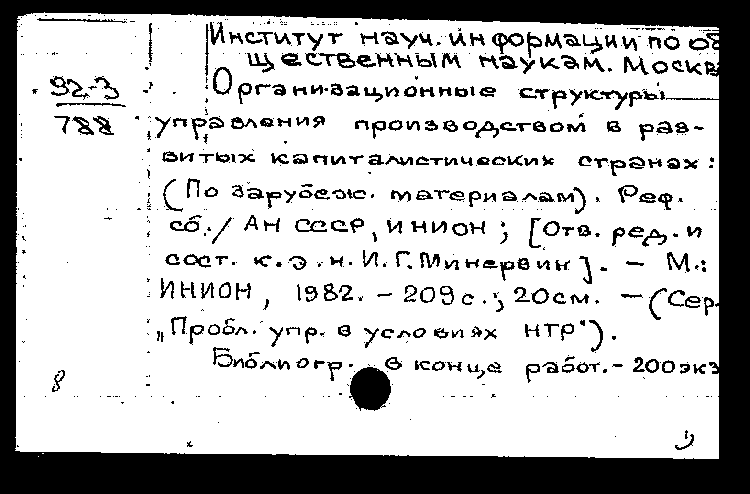 Институт науч. информации по об
щественным наукам. Москва
92-3
Организационные структуры
788
управления производством в раз-
витых капиталистических странах:
(По зарубеж. материалам). Реф.
сб. / АН СССР, ИНИОН; [Отв. ред. и
сост. к.э.н. И.Г. Минервин]. - М.:
ИНИОН, 1982. - 209 с.; 20 см. - (Сер.
„Пробл. упр. в условиях НТР").
Библиогр. в конце работ. - 200 экз
8